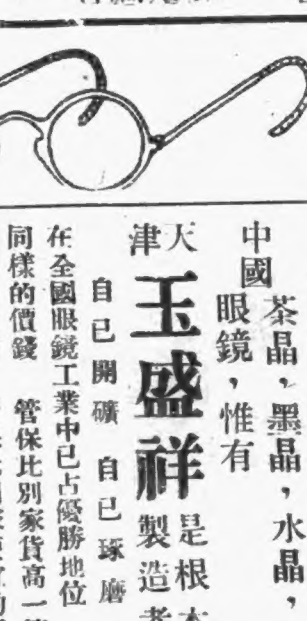 中國
茶晶，墨晶，水晶，
眼鏡，惟有
天津
玉盛祥
是根本
製造者
自己開礦 自己琢磨
在全國眼鏡工業中已占優勝地位
同樣的價錢 管保比別家貨高一